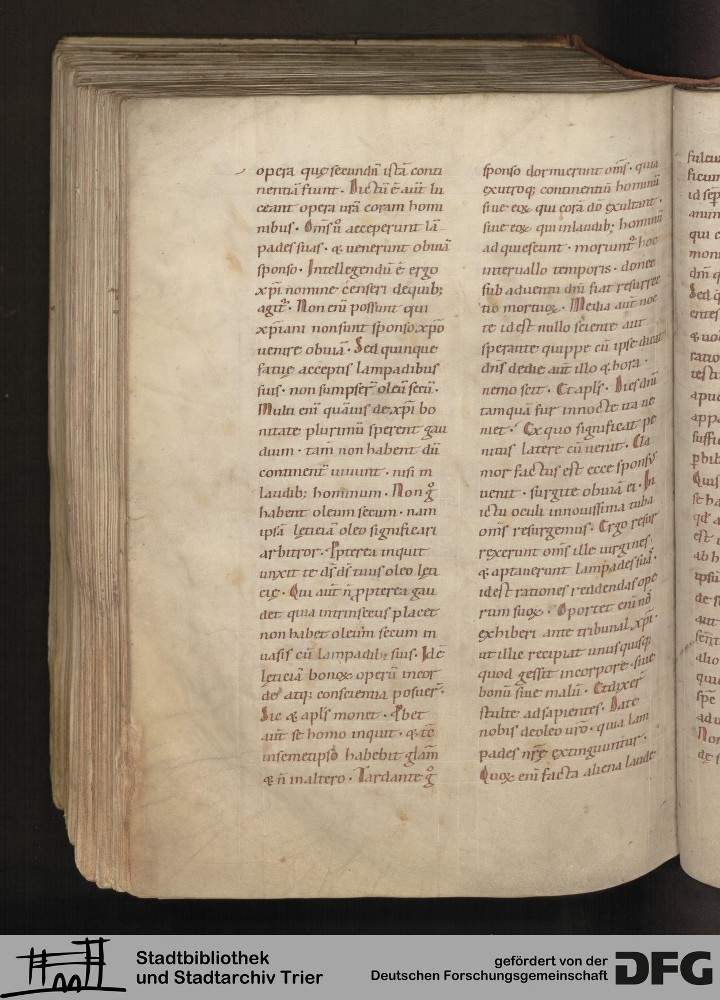 opera quę secundū istā conti
nentiā fiunt. Dictū ē aūt lu
ceant opera ūra coram homi
nibus. Om̄s ū acceperunt lā
pades suas. & uenerunt obuiā
sponso. Intellegendū ē ergo
xp̄i nomine censeri de quib;
agit᷑. Non enī possunt qui
xp̄iani non sunt sponso xp̄o
uenire obuiā. Sed quinque
fatuę acceptis lampadibus
suis. non sumpser̄ oleū secū.
Multi enī quāuis de xp̄i bo
nitate plurimū sperent gau
dium. tam̄ non habent dū
continent᷑ uiuunt. nisi in
laudib; hominum. Non g̊
habent oleum secum. nam
ipsā lęticiā oleo significari
arbitror. Ppterea inquit
unxit te d̄s d̄s tuus oleo lęti
cię. Qui aūt n̄ ppterea gau
det quia intrinsecus placet
non habet oleum secum in
uasis cū lampadib; suis. Id ē
lęticiā bonoꝝ operū in cor
de atq; conscientia posuer̄.
Sic & apl̄s monet. Pbet
aūt se homo inquit. & tc̄
in semetipso habebit gl̄am
& n̄ in altero. Tardante g̊
sponso dormierunt om̄s. quia
ex utroq; continentiū hominū
siue eoꝝ qui corā dō exultant.
siue eoꝝ qui in laudib; hominū
adquiescunt. moriunt᷑ hoc
interuallo temporis. donec
sub aduentū dn̄i fiat resurrec
tio mortuoꝝ. Media aūt noc
te id est nullo sciente aut
sperante quippe cū ipse dicat
dn̄s de die aūt illo & hora.
nemo scit. Et apl̄s. Dies dn̄i
tamquā fur in nocte ita ue
niet. Ex quo significat pe
nitus latere cū uenit. Cla
mor factus est ecce sponsus
uenit. surgite obuiā ei. In
ictu oculi in nouissima tuba
om̄s resurgemus. Ergo resur
rexerunt om̄s ille uirgines.
& aptauerunt lampades suas.
id est rationes reddendas ope
rum suoꝝ. Oportet enī nō
exhiberi ante tribunal xp̄i.
ut illic recipiat unusquisq;
quod gessit in corpore. siue
bonū siue malū. Et dixer̄
stulte ad sapientes. Date
nobis de oleo ūro. quia lam
pades nr̄ę extinguuntur.
Quoꝝ enī facta aliena laude
Stadtbibliothek
und Stadtarchiv Trier
gefördert von der
Deutschen Forschungsgemeinschaft
DFG